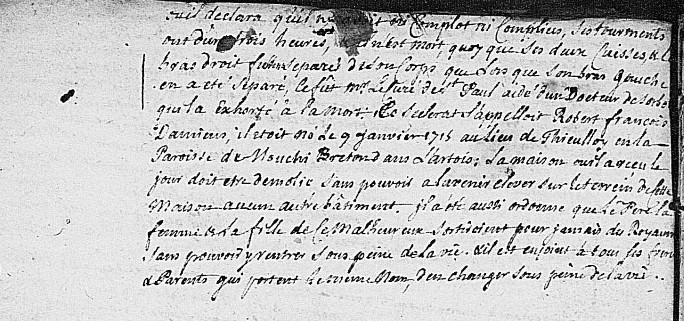 ou il declara qu'il n'avoit ni Complot ni Complices, ses tourments
ont duré trois heures, et n'est mort, quoy que ses deux Cuisses, & le
bras droit fussent separés de son Corps que Lors que son bras Gauche
en a eté Separé, ce fût Mr Le Curé de St Paul aidé d'un Docteur de Sorbo
qui la Exhorté à la Mort; Ce scelerat s'appelloit Robert francois
Damiens, il etoit né le 9 janvier 1715 au lieu de Thieulloy en la
Paroisse de Mouchi Breton dans L'artois; sa maison ou il a reçeu le
jour doit etre demolie sans pouvoir a lavenir Elever sur le terrein de cette
Maison aucun autre bâtiment. jl a été aussi ordonné que le Pere la
femme & la fille de ce Malheureux sortiroient pour jamais du Royaume
sans pouvoir y rentrer sous peine de la vie. & il est enjoint a tous ses freres
& Parents qui portent le meme Nom, d'en changer sous peine de la vie..